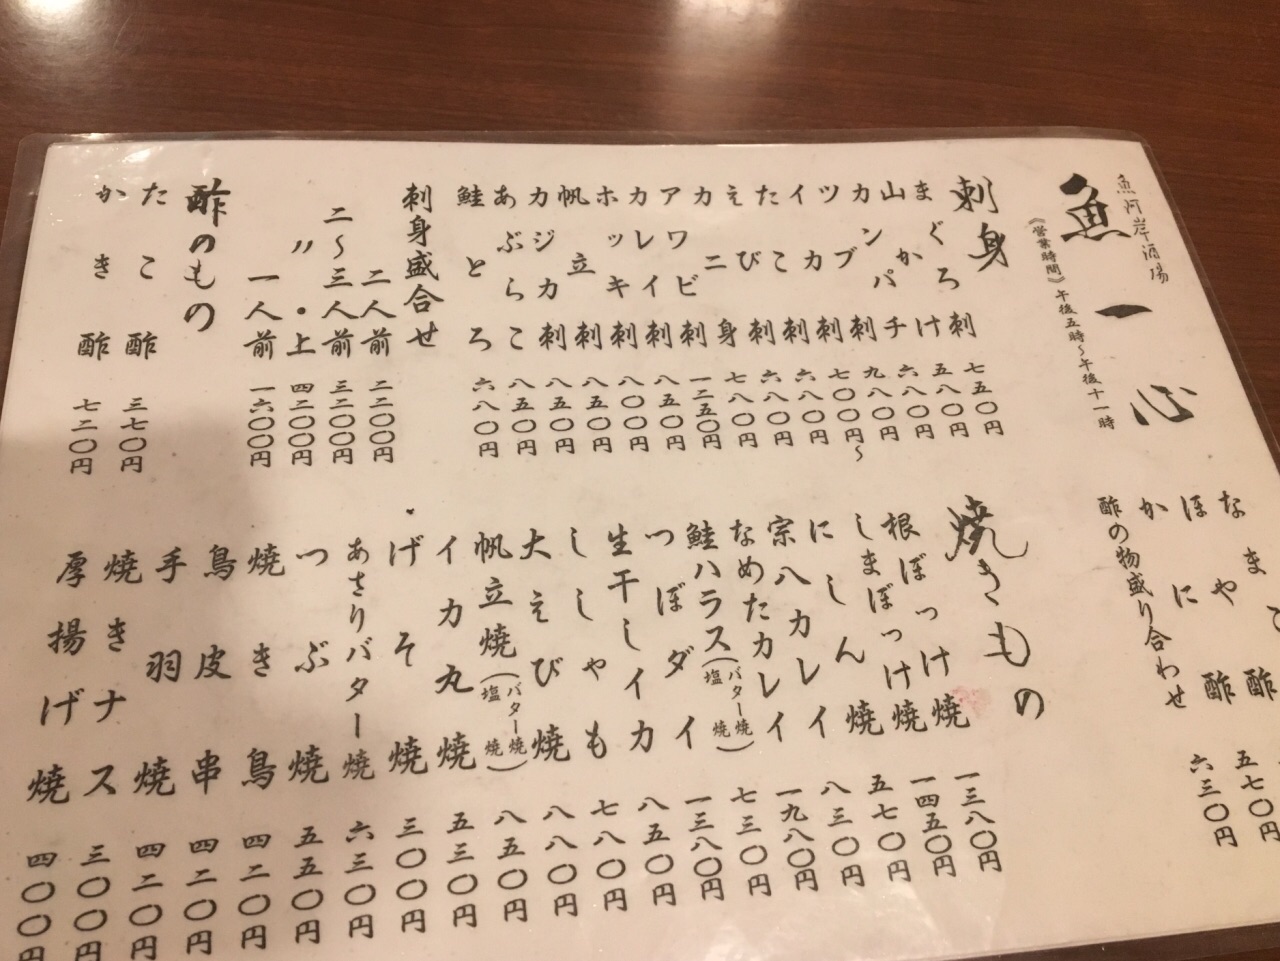 魚河岸酒場
魚一心
《営業時間》午後五時～午後十一時
刺身
まぐろ刺 七五〇円
山かけ 五八〇円
カンパチ 六八〇円
ツブ刺 九八〇円
イカ刺 七〇〇円～
たこ刺 六八〇円
えび刺 六八〇円
カニ身 七八〇円
アワビ刺 一二五〇円
カレイ刺 八五〇円
ホッキ刺 八〇〇円
帆立刺 八五〇円
カジカ刺 八五〇円
あぶらこ 八五〇円
鮭とろ 六八〇円
刺身盛合せ
二人前 二二〇〇円
二～三人前 三二〇〇円
〃・上 四二〇〇円
一人前 一六〇〇円
酢のもの
たこ酢 三七〇円
かき酢 七二〇円
なまこ
ほや酢
かに酢 五七〇円
酢の物盛り合わせ 六三〇円
焼きもの
根ぼっけ焼 一三八〇円
しまぼっけ焼 一四五〇円
にしん焼 五七〇円
宗八カレイ 八三〇円
なめたカレイ 一九八〇円
鮭ハラス（バター焼 塩焼） 七三〇円
つぼダイ 一三八〇円
生干しイカ 八五〇円
ししゃも 七八〇円
大えび焼 八八〇円
帆立焼（バター焼 塩焼） 八五〇円
イカ丸焼 五三〇円
げそ焼 三〇〇円
あさりバター焼 六三〇円
つぶ焼 五五〇円
焼き鳥 四二〇円
鳥皮串 四二〇円
手羽焼 四二〇円
焼きナス 三〇〇円
厚揚げ焼 四〇〇円